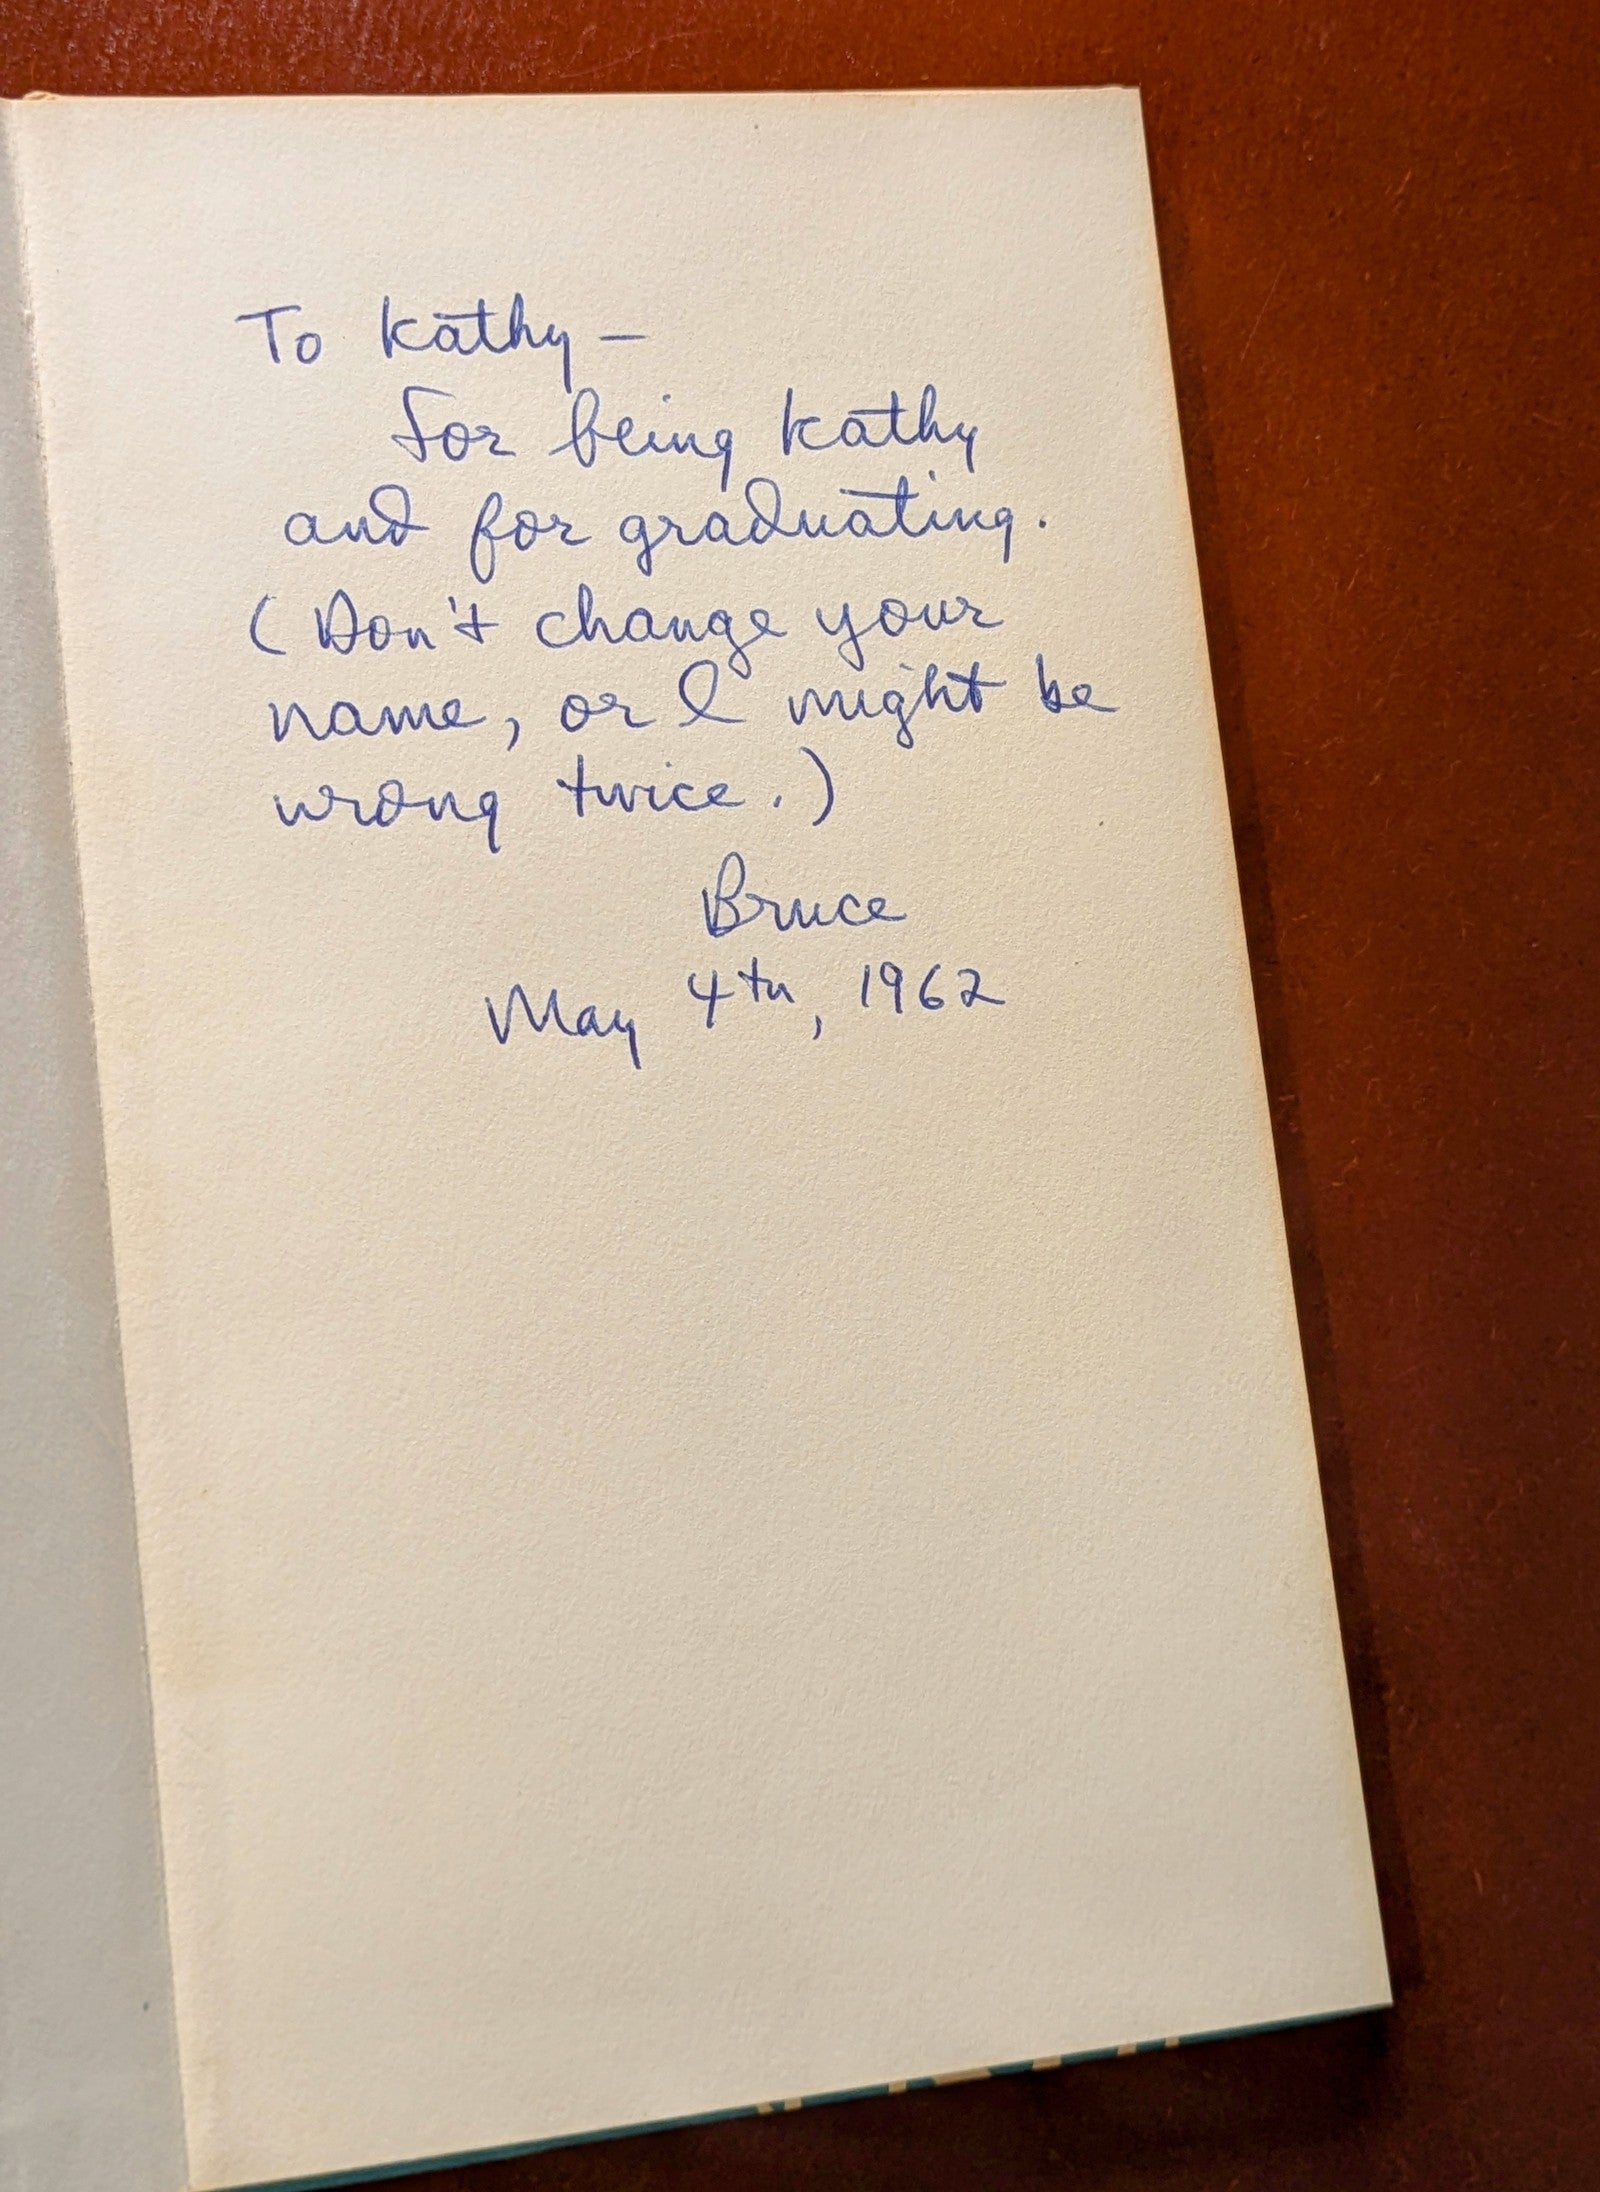 To Kathy —
For being Kathy
and for graduating.
(Don't change your
name, or I might be
wrong twice.)
Bruce
May 4th, 1962